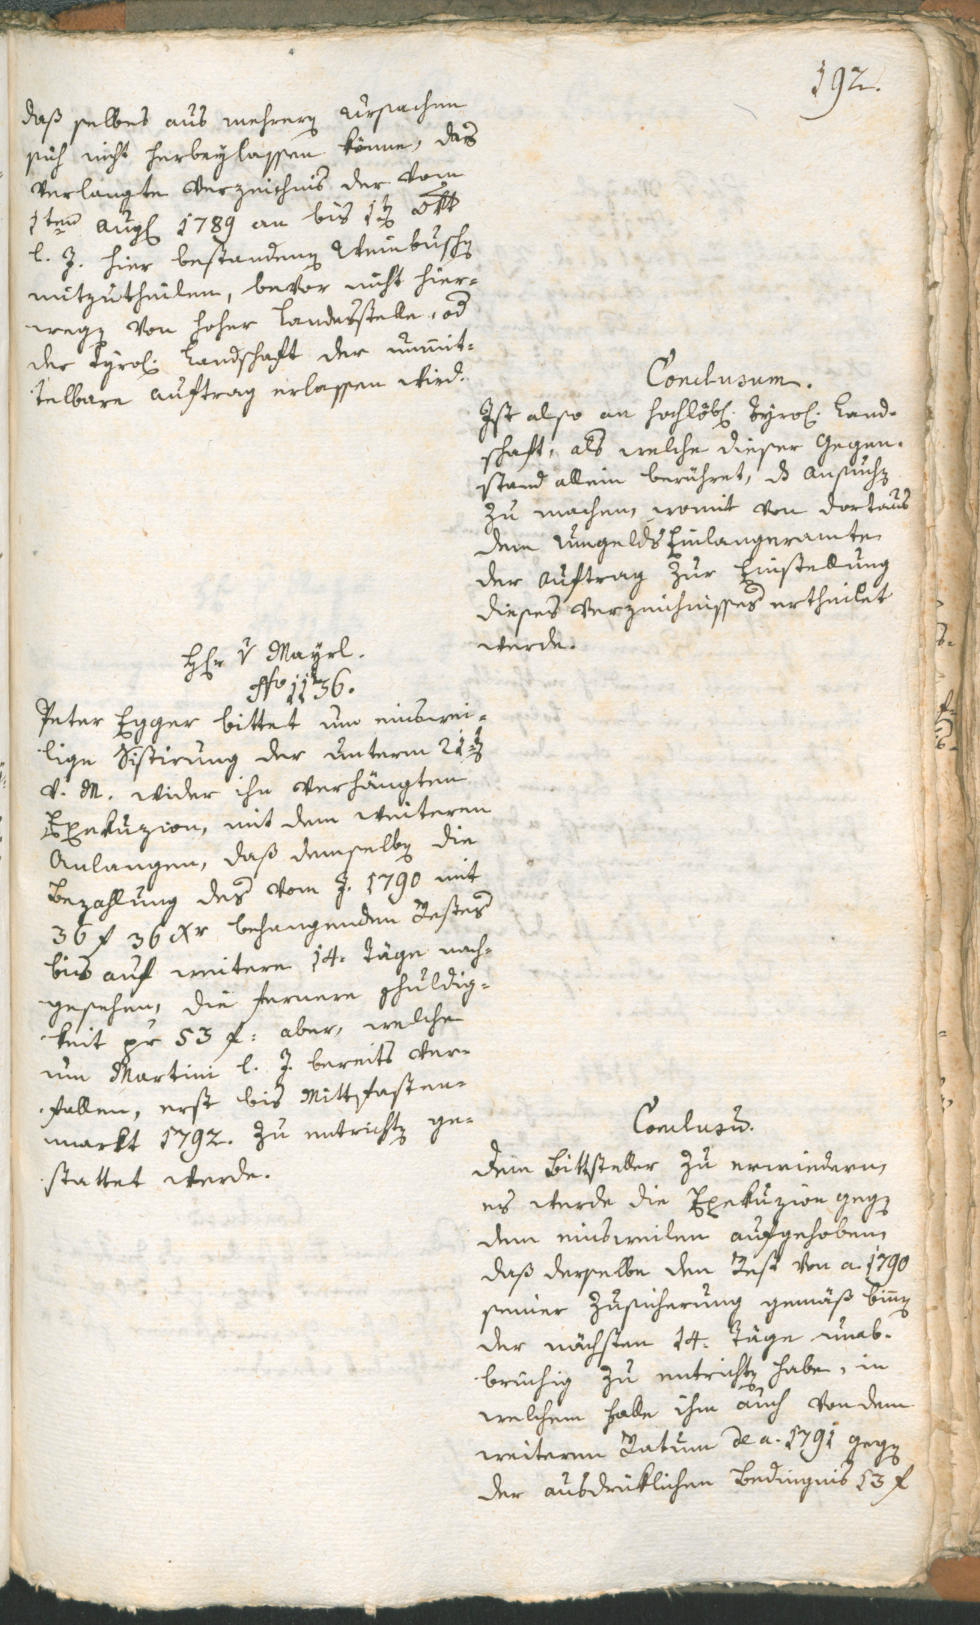 192.
daß selbes aus mehrern Ursachen
sich nicht herbeylassen könne, das
verlangte Verzeichnis der vom
1ten Augl 1789 an bis 1tn Oktb
l. J. hier bestandenen Weinbuschn
mitzutheilen, bevor nicht hier-
wegn von hoher Landesstelle, od
der Tyrol. Landschaft der unmit-
telbare Auftrag erlassen wird.
Conclusum.
Ist also an hochlöbl. Tyrol. Land-
schaft, als welche dieser Gegen-
stand allein berühret, das Ansuchn
zu machen, womit von dortaus
dem Umgelds Einlangeramte
der Auftrag zur Einstellung
dieses Verzeichnisses ertheilet
werde.
Hr v Mayrl.
No 1136.
Peter Egger bittet um einswei-
lige Sistirung der unterm 21tn
v. M. wider ihn verhängten
Exekuzion, mit dem weiteren
Anlangen, daß demselbn die
Bezahlung des vom J. 1790 mit
36 f 36 xr behangenden Restes
bis auf weitere 14. Täge nach-
gesehen, die fernere Schuldig-
keit pr 53 f: aber, welche
um Martini l. J. bereits ver-
fallen, erst bis Mittfasten-
markt 1792. zu entrichtn ge-
stattet werde.
Conclusu.
Dem Bittsteller zu erwiedern,
es werde die Exekuzion gegn
dem einsweilen aufgehoben,
daß derselbe den Rest von a. 1790
seiner Zusicherung gemäß binn
der nächsten 14. Täge unab-
brüchig zu entrichtn habe, in
welchem Falle ihm auch von dem
weiteren Ratum de a. 1791 gegn
der ausdrüklichen Bedingnis 13 f